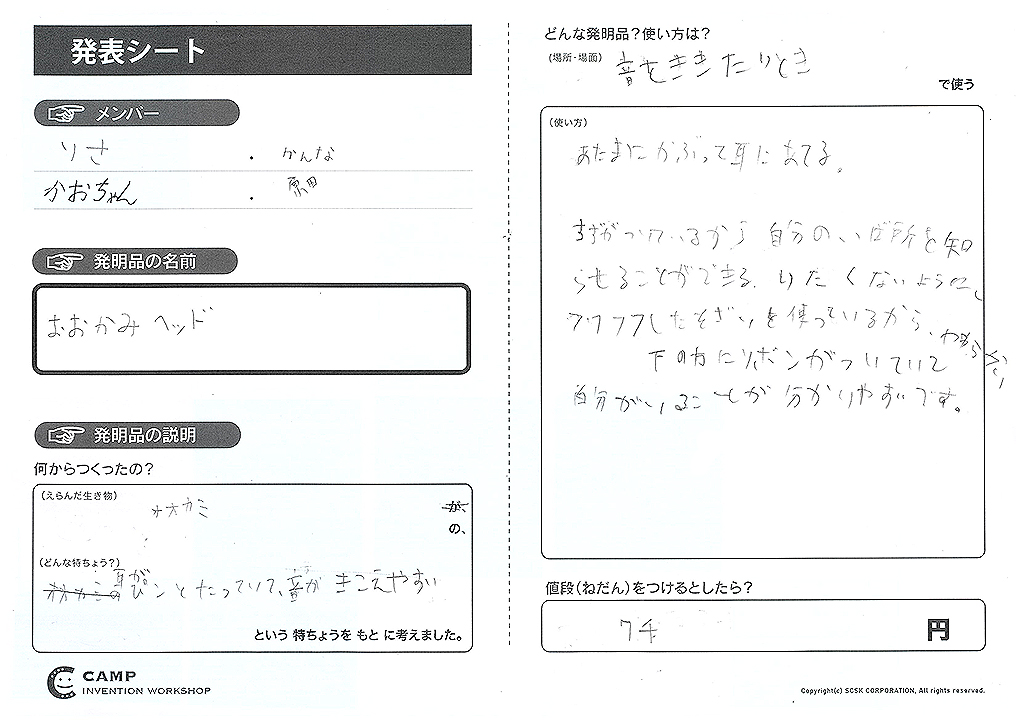 発表シート
メンバー
りさ ・ かんな
かおちゃん ・ 原田
発明品の名前
おおかみ ヘッド
発明品の説明
何からつくったの?
(えらんだ生き物)
オオカミ
が、
の、
(どんな特ちょう?)
耳が
ピンとたっていて、音が きこえやすい
という 特ちょうを もと に考えました。
CAMP
INVENTION WORKSHOP
どんな発明品?使い方は?
(場所・場面)
音をききたいとき
で使う
(使い方)
あたまにかぶって耳にあてる。
すずがついているから 自分のいば所を知
らせることができる。いたくないように、
フワフワしたそざいを使っているから、
下の方にリボンがついていて
自分がいることが分かりやすいです。
値段(ねだん)をつけるとしたら?
7千
円
Copyright(c) SCSK CORPORATION, All rights reserved.